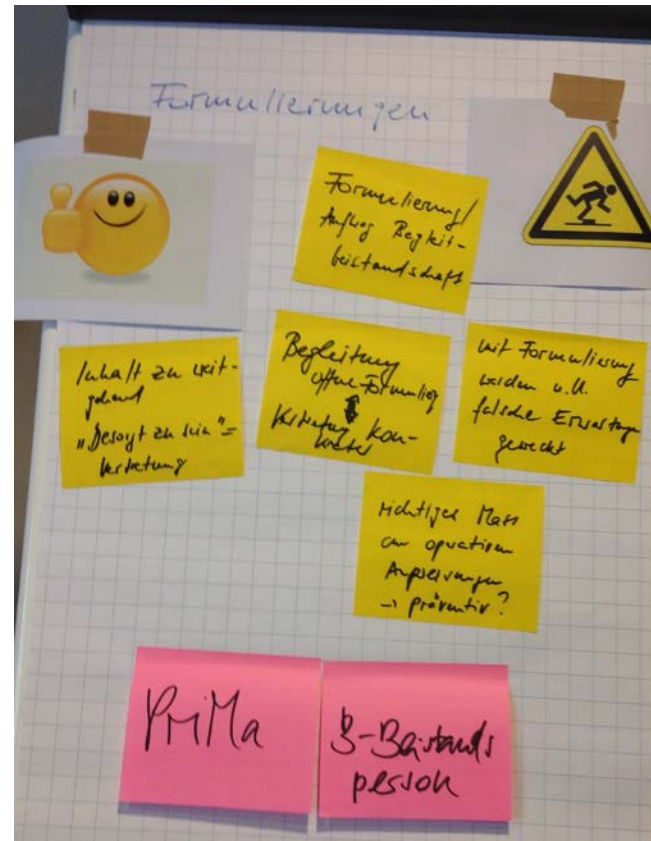 Formulierungen
Formulierung/
Auftrag Begleit-
beistandschaft
Inhalt zu weit-
gehend
„Besorgt zu sein“ =
Vertretung
Begleitung
offene Formulierung
↕
Vertretung kon-
kreter
mit Formulierung
werden u.U.
falsche Erwartungen
geweckt
richtiges Mass
an operativen
Anweisungen
→ präventiv?
PriMa
B-Beistands
person